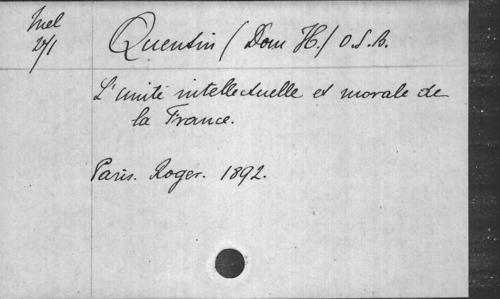 Mel
27/1
Quentin (Dom H.) O.S.B.
L'unité intellectuelle et morale de
la France.
Paris. Roger. 1892.